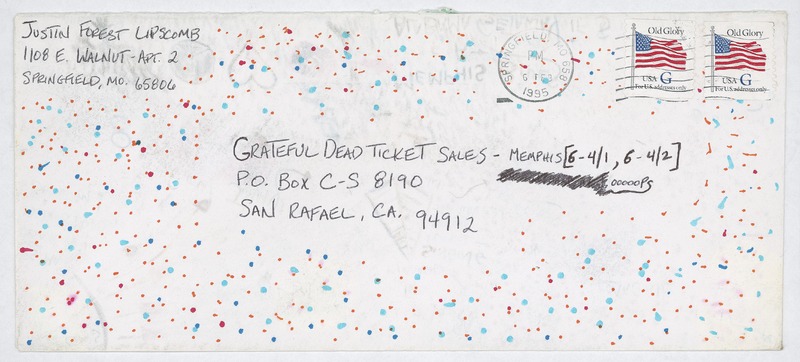 JUSTIN FOREST LIPSCOMB
1108 E. WALNUT-APT. 2
SPRINGFIELD, MO. 65806
SPRINGFIELD, MO 658
PM
6 FEB
1995
Old Glory
USA G
For U.S. addresses only
Old Glory
USA G
For U.S. addresses only
GRATEFUL DEAD TICKET SALES - MEMPHIS [6-4/1, 6-4/2]
P.O. BOX C-S 8190
OOOOOPS
SAN RAFAEL, CA. 94912